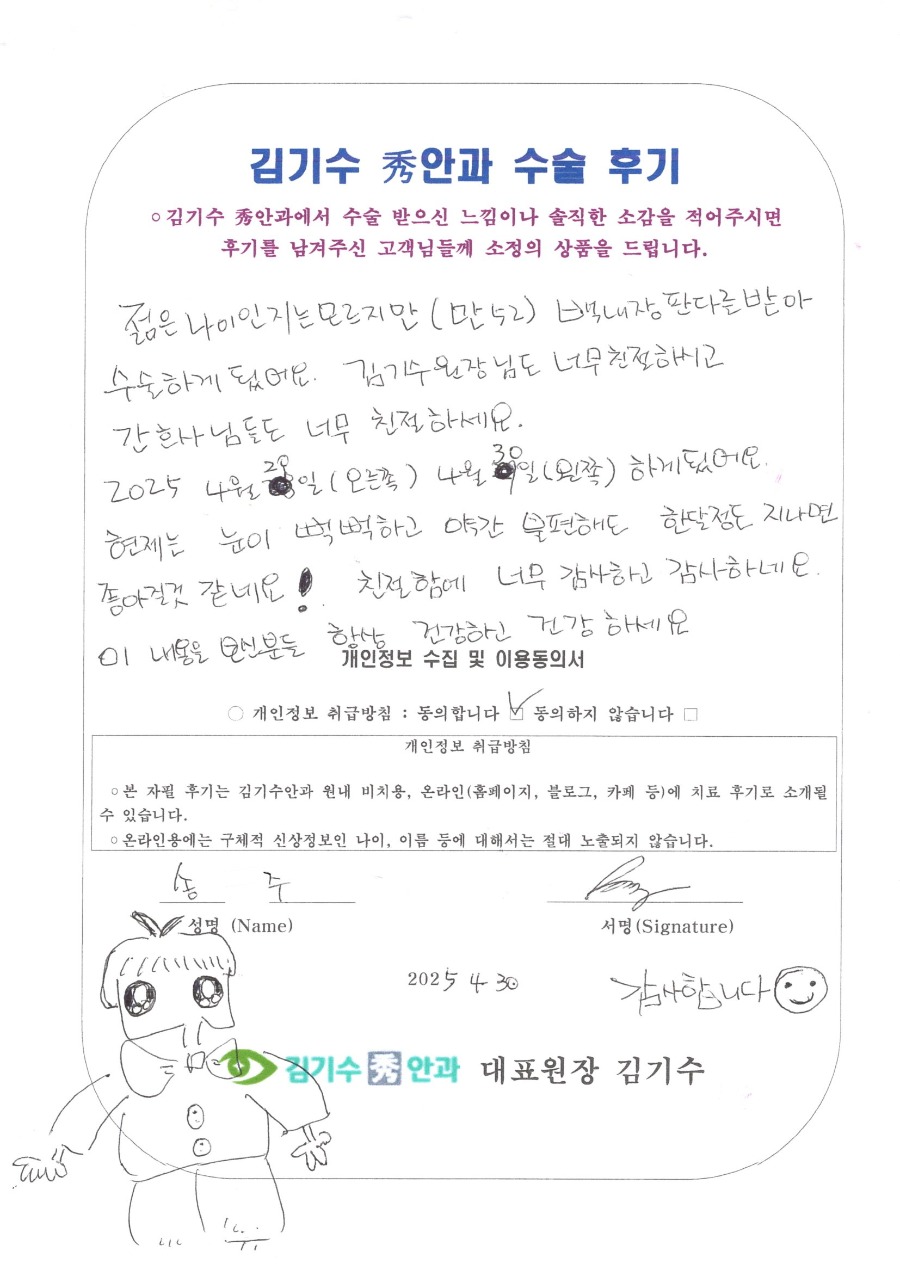 김기수 秀안과 수술 후기
○ 김기수 秀안과에서 수술 받으신 느낌이나 솔직한 소감을 적어주시면
후기를 남겨주신 고객님들께 소정의 상품을 드립니다.
젊은 나이인지는 모르지만 (만 52) 백내장 판다를 받아
수술하게 됬어요. 김기수 원장님도 너무 친절하시고
간호사님들도 너무 친절하세요.
2025 4월 29일 (오른쪽) 4월 30일 (왼쪽) 하게 됬어요.
현제는 눈이 뻑뻑하고 약간 불편해도 한달정도 지나면
좋아질것 같네요! 친절함에 너무 감사하고 감사하네요.
이 내용을 보신분들 항상 건강하고 건강 하세요
개인정보 수집 및 이용동의서
○ 개인정보 취급방침 : 동의합니다 ☑ 동의하지 않습니다 □
개인정보 취급방침
○ 본 자필 후기는 김기수안과 원내 비치용, 온라인(홈페이지, 블로그, 카페 등)에 치료 후기로 소개될
수 있습니다.
○ 온라인용에는 구체적 신상정보인 나이, 이름 등에 대해서는 절대 노출되지 않습니다.
송 주
성명 (Name) 서명(Signature)
2025 4. 30
감사합니다
김기수 秀 안과 대표원장 김기수